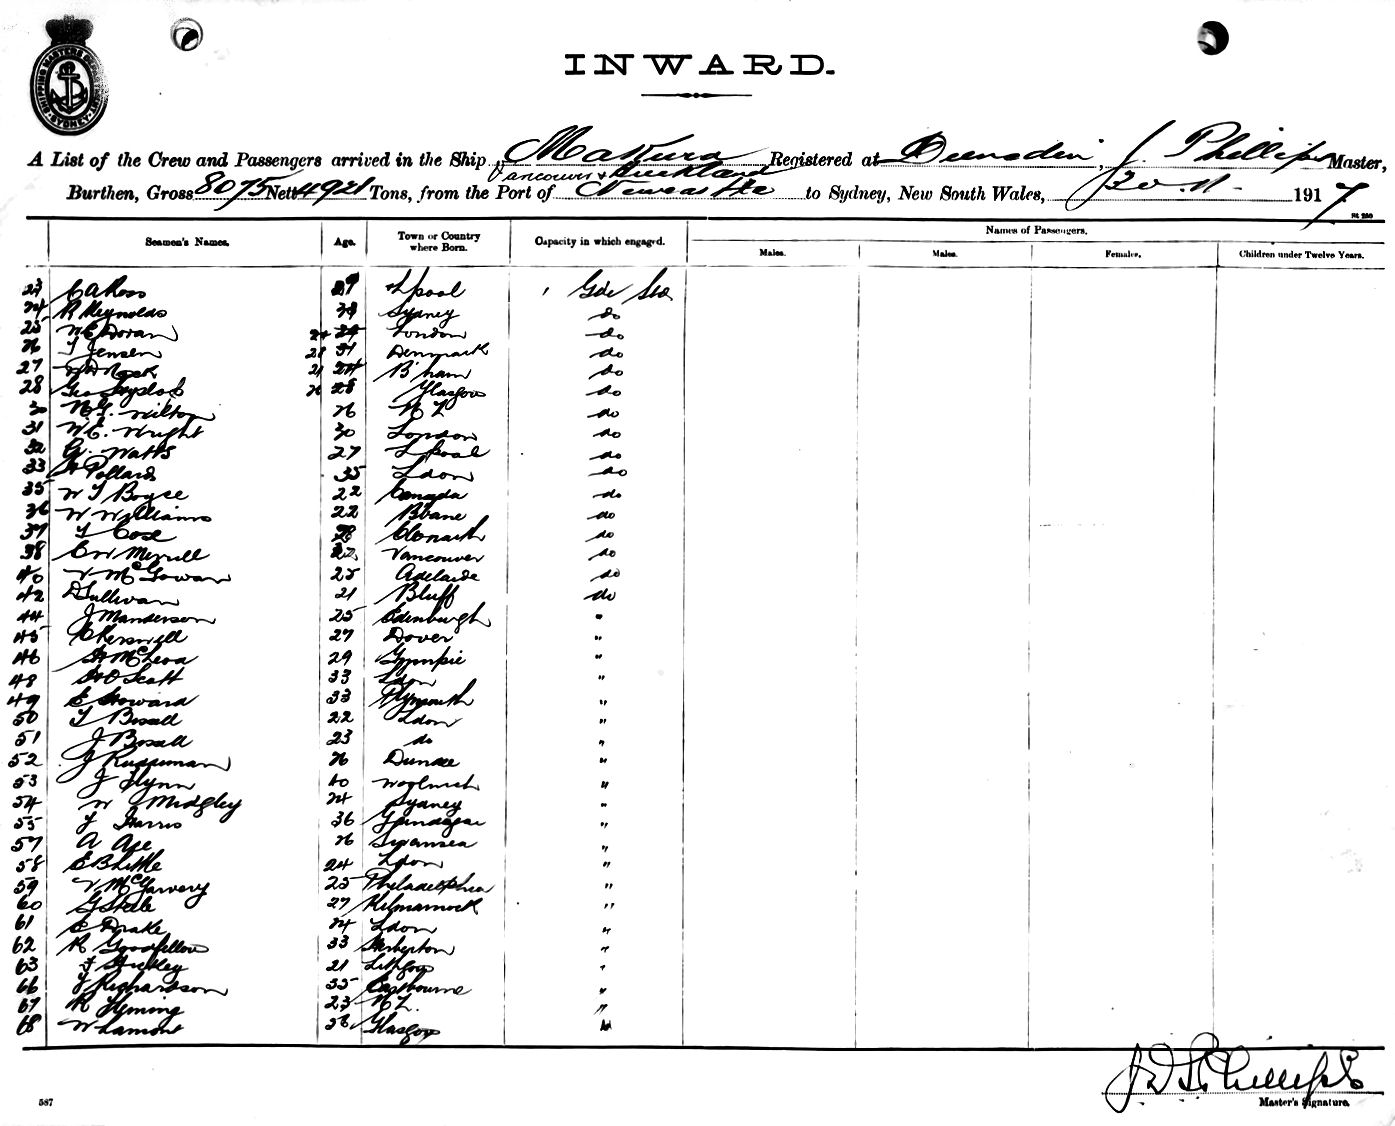 SHIPPING MASTERS DEPARTMENT SYDNEY
INWARD.
A List of the Crew and Passengers arrived in the Ship "Makura Registered at Dunedin, J. Phillips Master,
Vancouver & Auckland
Burthen, Gross 8075 Nett 4921 Tons, from the Port of Newcastle to Sydney, New South Wales, 20. 11. 1917
Seamen's Names. Age. Town or Country where Born. Capacity in which engaged. Names of Passengers.
Males. Males. Females. Children under Twelve Years.
23 C A Ross 29 L'pool
24 R Reynolds Sydney do
25 W E Doran 24 London do
26 Jensen 28 Denmark do
27 21 B'ham do
28 Geo 26 28 Glasgow do
30 Milton 26 N Z do
31 W. E. Wright 30 London do
32 G. Watts 27 L'pool do
33 H Pollard 35 Ldon do
35 W J Boyce 22 Canada do
36 W Williams 22 B'bane do
37 do
38 C W Merrill 22 Vancouver do
40 V McGowan 25 Adelaide do
42 D Sullivan 21 Bluff do
44 J Manderson 25 Edenburgh "
45 27 Dover "
46 29 Gympie "
48 H O Scott 33 Ldon "
49 E Howard 33 Plymouth "
50 22 Ldon "
51 23 do "
52 26 Dundee "
53 J Flynn 40 Woolwich "
54 W Midgley 24 Sydney "
55 Harris 36 "
57 A 26 Swansea "
58 E B Little 24 Ldon "
59 V McGarvery 25 Philadelphia "
60 G Steele 27 Kilmarnock "
61 Drake 24 Ldon "
62 R Goodfellow 33 Herberton "
63 21 Lithgow "
66 Richardson 35 Eastbourne "
67 R Fleming 23 N Z. "
68 W Lamont Glasgow "
J D S Phillips
Master's Signature.
587